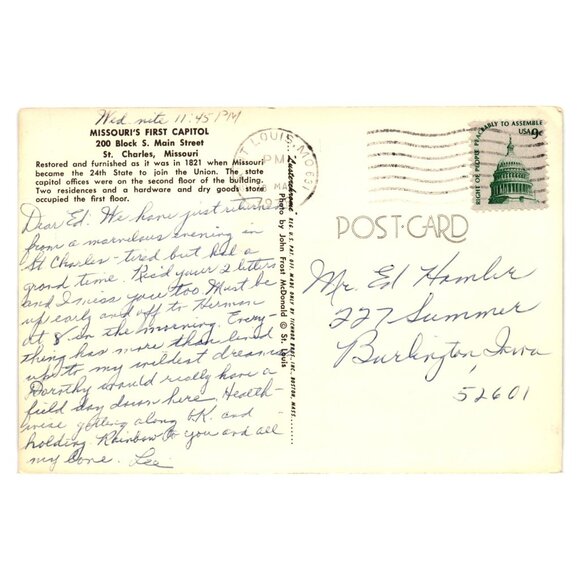 Wed nite 11:45 PM
MISSOURI'S FIRST CAPITOL
200 Block S. Main Street
St. Charles, Missouri
Restored and furnished as it was in 1821 when Missouri
became the 24th State to join the Union. The state
capitol offices were on the second floor of the building.
Two residences and a hardware and dry goods store
occupied the first floor.
Dear Ed. We have just returned
from a marvelous evening in
St Charles - tired but had a
grand time. Rec'd your 2 letters
and I miss you too. Must be
up early and off to Herman
at 8 in the morning. Every-
thing has more than lived
up to my wildest dreams
Dorothy would really have a
field day down here. Health-
wise getting along O.K. and
holding. Rainbow to you and all
my love. Lee
"Lusterchrome" REG. U.S. PAT. OFF. MADE ONLY BY TICHNOR BROS., INC., BOSTON, MASS.
Photo by John Frost McDonald © St. Louis
ST LOUIS, MO 631
PM
MA
RIGHT OF PEOPLE PEACEABLY TO ASSEMBLE
USA 9c
POST-CARD
Mr. Ed Hamler
227 Summer
Burlington, Iowa
52601